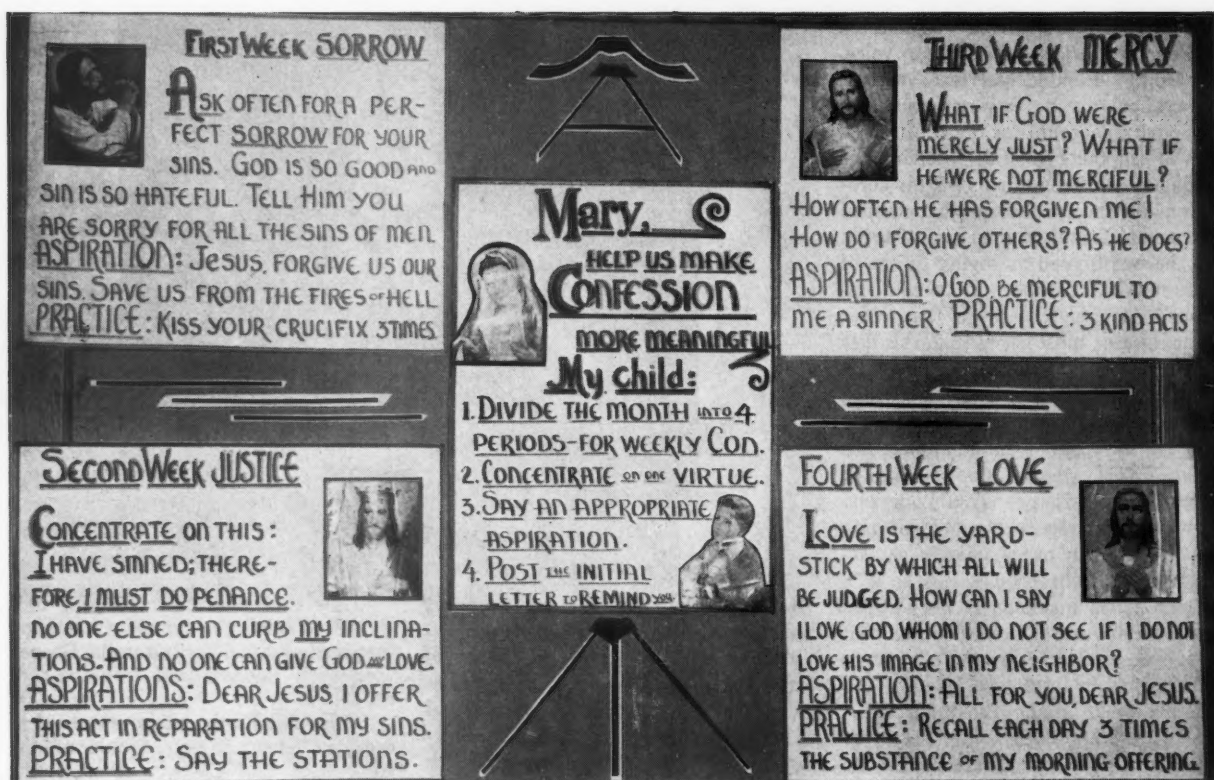 FIRST WEEK SORROW
ASK OFTEN FOR A PER-
FECT SORROW FOR YOUR
SINS. GOD IS SO GOOD AND
SIN IS SO HATEFUL. TELL HIM YOU
ARE SORRY FOR ALL THE SINS OF MEN.
ASPIRATION: JESUS, FORGIVE US OUR
SINS. SAVE US FROM THE FIRES OF HELL
PRACTICE: KISS YOUR CRUCIFIX 3 TIMES.
SECOND WEEK JUSTICE
CONCENTRATE ON THIS:
I HAVE SINNED; THERE-
FORE I MUST DO PENANCE.
NO ONE ELSE CAN CURB MY INCLINA-
TIONS. AND NO ONE CAN GIVE GOD MY LOVE.
ASPIRATIONS: DEAR JESUS, I OFFER
THIS ACT IN REPARATION FOR MY SINS.
PRACTICE: SAY THE STATIONS.
Mary,
HELP US MAKE
CONFESSION
MORE MEANINGFUL
My child:
1. DIVIDE THE MONTH INTO 4
PERIODS-FOR WEEKLY CON.
2. CONCENTRATE ON ONE VIRTUE.
3. SAY AN APPROPRIATE
ASPIRATION.
4. POST THE INITIAL
LETTER TO REMIND YOU
THIRD WEEK MERCY
WHAT IF GOD WERE
MERELY JUST? WHAT IF
HE WERE NOT MERCIFUL?
HOW OFTEN HE HAS FORGIVEN ME!
HOW DO I FORGIVE OTHERS? AS HE DOES?
ASPIRATION: O GOD BE MERCIFUL TO
ME A SINNER. PRACTICE: 3 KIND ACTS
FOURTH WEEK LOVE
LOVE IS THE YARD-
STICK BY WHICH ALL WILL
BE JUDGED. HOW CAN I SAY
I LOVE GOD WHOM I DO NOT SEE IF I DO NOT
LOVE HIS IMAGE IN MY NEIGHBOR?
ASPIRATION: ALL FOR YOU, DEAR JESUS.
PRACTICE: RECALL EACH DAY 3 TIMES
THE SUBSTANCE OF MY MORNING OFFERING.